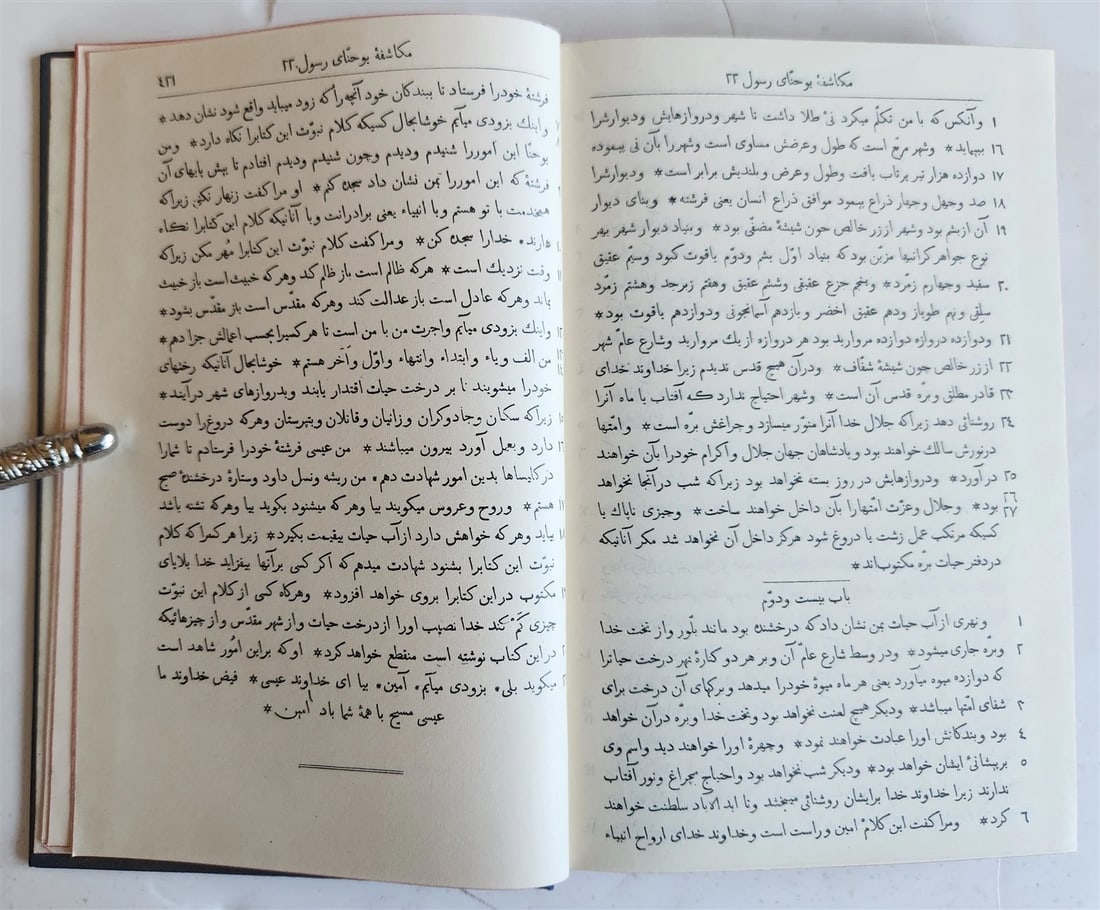 مکاشفهٔ یوحنّای رسول ۲۲
۱ وآنکس که با من تکلّم میکرد نیٔ طلا داشت تا شهر ودروازهایش ودیوارشرا
۱۶ بپیماید * وشهر مربّع است که طول وعرضش مساوی است وشهررا بآن نی پیموده
۱۷ دوازده هزار تیر پرتاب یافت وطول وعرض وبلندیش برابر است * ودیوارشرا
۱۸ صد وچهل وچهار ذراع پیمود موافق ذراع انسان یعنی فرشته * وبنای دیوار
۱۹ آن ازیشم بود وشهر اززر خالص چون شیشهٔ مصفّی بود * وبنیاد دیوار شهر بهر
نوع جواهر گرانبها مزیّن بود که بنیاد اوّل یشم ودوّم یاقوت کبود وسیّم عقیق
۲۰ سفید وچهارم زمرّد * وپنجم جزع عقیقی وششم عقیق وهفتم زبرجد وهشتم زمرّد
سلقی ونهم طوپاز ودهم عقیق اخضر ویازدهم آسمانجونی ودوازدهم یاقوت بود *
۲۱ ودوازده دروازه دوازده مروارید بود هر دروازه از یك مروارید وشارع عامّ شهر
۲۲ اززر خالص چون شیشهٔ شفّاف * ودرآن هیچ قدس ندیدم زیرا خداوند خدای
۲۳ قادر مطلق وبرّه قدس آن است * وشهر احتیاج ندارد که آفتاب یا ماه آنرا
۲۴ روشنائی دهد زیراکه جلال خدا آنرا منوّر میسازد وچراغش برّه است * وامّتها
درنورش سالك خواهند بود وپادشاهان جهان جلال واکرام خودرا بآن خواهند
۲۵ درآورد * ودروازهایش در روز بسته نخواهد بود زیراکه شب درآنجا نخواهد
۲۶ ۲۷ بود * وجلال وعزّت امّتهارا بآن داخل خواهند ساخت * وچیزی ناپاك یا
کسیکه مرتکب عمل زشت یا دروغ شود هرگز داخل آن نخواهد شد مگر آنانیکه
دردفتر حیات برّه مکتوب‌اند *
باب بیست ودوّم
۱ ونهری ازآب حیات بمن نشان داد که درخشنده بود مانند بلّور واز تخت خدا
۲ وبرّه جاری میشود * ودر وسط شارع عامّ آن وبر هر دو کنارهٔ نهر درخت حیاترا
که دوازده میوه میآورد یعنی هر ماه میوهٔ خودرا میدهد وبرگهای آن درخت برای
۳ شفای امّتها میباشد * ودیگر هیچ لعنت نخواهد بود وتخت خدا وبرّه درآن خواهد
۴ بود وبندگانش اورا عبادت خواهند نمود * وچهرهٔ اورا خواهند دید واسم وی
۵ برپیشانیٔ ایشان خواهد بود * ودیگر شب نخواهد بود واحتیاج بچراغ ونور آفتاب
ندارند زیرا خداوند خدا برایشان روشنائی میبخشد وتا ابد الآباد سلطنت خواهند
۶ کرد * ومرا گفت این کلام امین وراست است وخداوند خدای ارواح انبیاء
مکاشفهٔ یوحنّای رسول ۲۲
۴۲۱
فرشتهٔ خودرا فرستاد تا ببندگان خود آنچه‌را که زود میباید واقع شود نشان دهد *
واینك بزودی میآیم خوشابحال کسیکه کلام نبوّت این کتابرا نگاه دارد * ومن
یوحنّا این اموررا شنیدم ودیدم وچون شنیدم ودیدم افتادم تا پیش پایهای آن
فرشتهٔ که این اموررا بمن نشان داد سجده کنم * او مرا گفت زنهار نکنی زیراکه
همخدمت با تو هستم وبا انبیاء یعنی برادرانت وبا آنانیکه کلام این کتابرا نگاه
دارند، خدارا سجده کن * ومرا گفت کلام نبوّت این کتابرا مُهر مکن زیراکه
وقت نزدیك است * هرکه ظالم است باز ظلم کند وهرکه خبیث است باز خبیث
بماند وهرکه عادل است باز عدالت کند وهرکه مقدّس است باز مقدّس بشود *
واینك بزودی میآیم واجرت من با من است تا هرکسیرا بحسب اعمالش جزا دهم *
من الف ویاء وابتداء وانتهاء واوّل وآخر هستم * خوشابحال آنانیکه رختهای
خودرا میشویند تا بر درخت حیات اقتدار یابند وبدروازهای شهر درآیند *
زیراکه سگان وجادوگران وزانیان وقاتلان وبتپرستان وهرکه دروغ‌را دوست
دارد وبعمل آورد بیرون میباشند * من عیسی فرشتهٔ خودرا فرستادم تا شمارا
درکلیساها بدین امور شهادت دهم، من ریشه ونسل داود وستارهٔ درخشندهٔ صبح
هستم * وروح وعروس میگویند بیا وهرکه میشنود بگوید بیا وهرکه تشنه باشد
بیاید وهرکه خواهش دارد ازآب حیات بیقیمت بگیرد * زیرا هرکسرا که کلام
نبوّت این کتابرا بشنود شهادت میدهم که اگر کسی برآنها بیفزاید خدا بلایای
مکتوب دراین کتابرا بروی خواهد افزود * وهرگاه کسی ازکلام این نبوّت
چیزی کَمْ کند خدا نصیب اورا ازدرخت حیات واز شهر مقدّس واز چیزهائیکه
دراین کتاب نوشته است منقطع خواهد کرد * اوکه براین امُور شاهد است
میگوید بلی، بزودی میآیم، آمین، بیا ای خداوند عیسی * فیض خداوند ما
عیسی مسیح با همهٔ شما باد آمین *